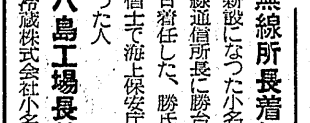 無線所長着
新設になつた小名
線通信所長に勝台
日着任した、勝氏
宿士で海上保安庁
つた人
八島工場長
冷蔵株式会社小名